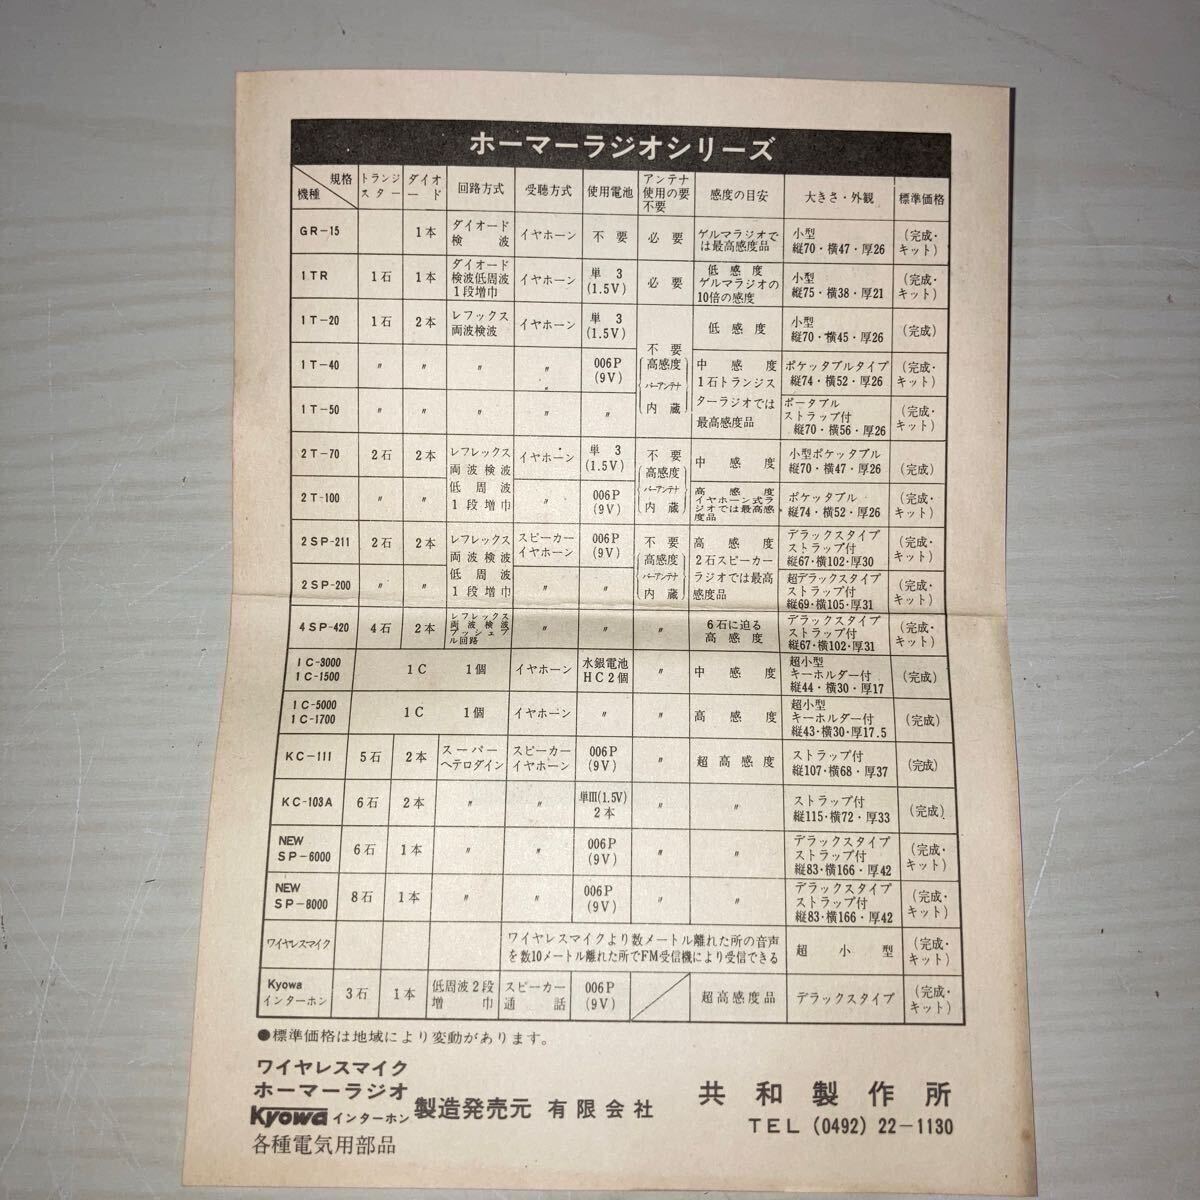 ホーマーラジオシリーズ
規格 機種 トランジスター ダイオード 回路方式 受聴方式 使用電池 アンテナ使用の要不要 感度の目安 大きさ・外観 標準価格
GR-15 1本 ダイオード検波 イヤホーン 不要 必要 ゲルマラジオでは最高感度品 小型 縦70・横47・厚26 (完成・キット)
1TR 1石 1本 ダイオード検波低周波1段増巾 イヤホーン 単3(1.5V) 必要 低感度ゲルマラジオの10倍の感度 小型 縦75・横38・厚21 (完成・キット)
1T-20 1石 2本 レフックス両波検波 イヤホーン 単3(1.5V) 不要(高感度バーアンテナ内蔵) 低感度 小型 縦70・横45・厚26 (完成)
1T-40 〃 〃 〃 〃 006P(9V) 中感度1石トランジスターラジオでは最高感度品 ポケッタブルタイプ 縦74・横52・厚26 (完成・キット)
1T-50 〃 〃 〃 〃 〃 ポータブルストラップ付 縦70・横56・厚26 (完成・キット)
2T-70 2石 2本 レフレックス両波検波低周波1段増巾 イヤホーン 単3(1.5V) 不要(高感度バーアンテナ内蔵) 中感度 小型ポケッタブル 縦70・横47・厚26 (完成)
2T-100 〃 〃 〃 006P(9V) 高感度イヤホーン式ラジオでは最高感度品 ポケッタブル 縦74・横52・厚26 (完成・キット)
2SP-211 2石 2本 レフレックス両波検波低周波1段増巾 スピーカーイヤホーン 006P(9V) 不要(高感度バーアンテナ内蔵) 高感度2石スピーカーラジオでは最高感度品 デラックスタイプストラップ付 縦67・横102・厚30 (完成・キット)
2SP-200 〃 〃 〃 〃 超デラックスタイプストラップ付 縦69・横105・厚31 (完成・キット)
4SP-420 4石 2本 レフレックス両波検波プッシュプル回路 〃 〃 〃 6石に迫る高感度 デラックスタイプストラップ付 縦67・横102・厚31 (完成・キット)
IC-3000 IC-1500 IC 1個 イヤホーン 水銀電池HC2個 〃 中感度 超小型キーホルダー付 縦44・横30・厚17 (完成)
IC-5000 IC-1700 IC 1個 イヤホーン 〃 〃 高感度 超小型キーホルダー付 縦43・横30・厚17.5 (完成)
KC-111 5石 2本 スーパーヘテロダイン スピーカーイヤホーン 006P(9V) 〃 超高感度 ストラップ付 縦107・横68・厚37 (完成)
KC-103A 6石 2本 〃 〃 単III(1.5V)2本 〃 〃 ストラップ付 縦115・横72・厚33 (完成)
NEW SP-6000 6石 1本 〃 〃 006P(9V) 〃 〃 デラックスタイプストラップ付 縦83・横166・厚42 (完成・キット)
NEW SP-8000 8石 1本 〃 〃 006P(9V) 〃 〃 デラックスタイプストラップ付 縦83・横166・厚42 (完成・キット)
ワイヤレスマイク ワイヤレスマイクより数メートル離れた所の音声を数10メートル離れた所でFM受信機により受信できる 超小型 (完成・キット)
Kyowa インターホン 3石 1本 低周波2段増巾 スピーカー通話 006P(9V) 超高感度品 デラックスタイプ (完成・キット)
●標準価格は地域により変動があります。
ワイヤレスマイク
ホーマーラジオ
Kyowa インターホン 製造発売元 有限会社 共和製作所
各種電気用部品
TEL (0492) 22-1130